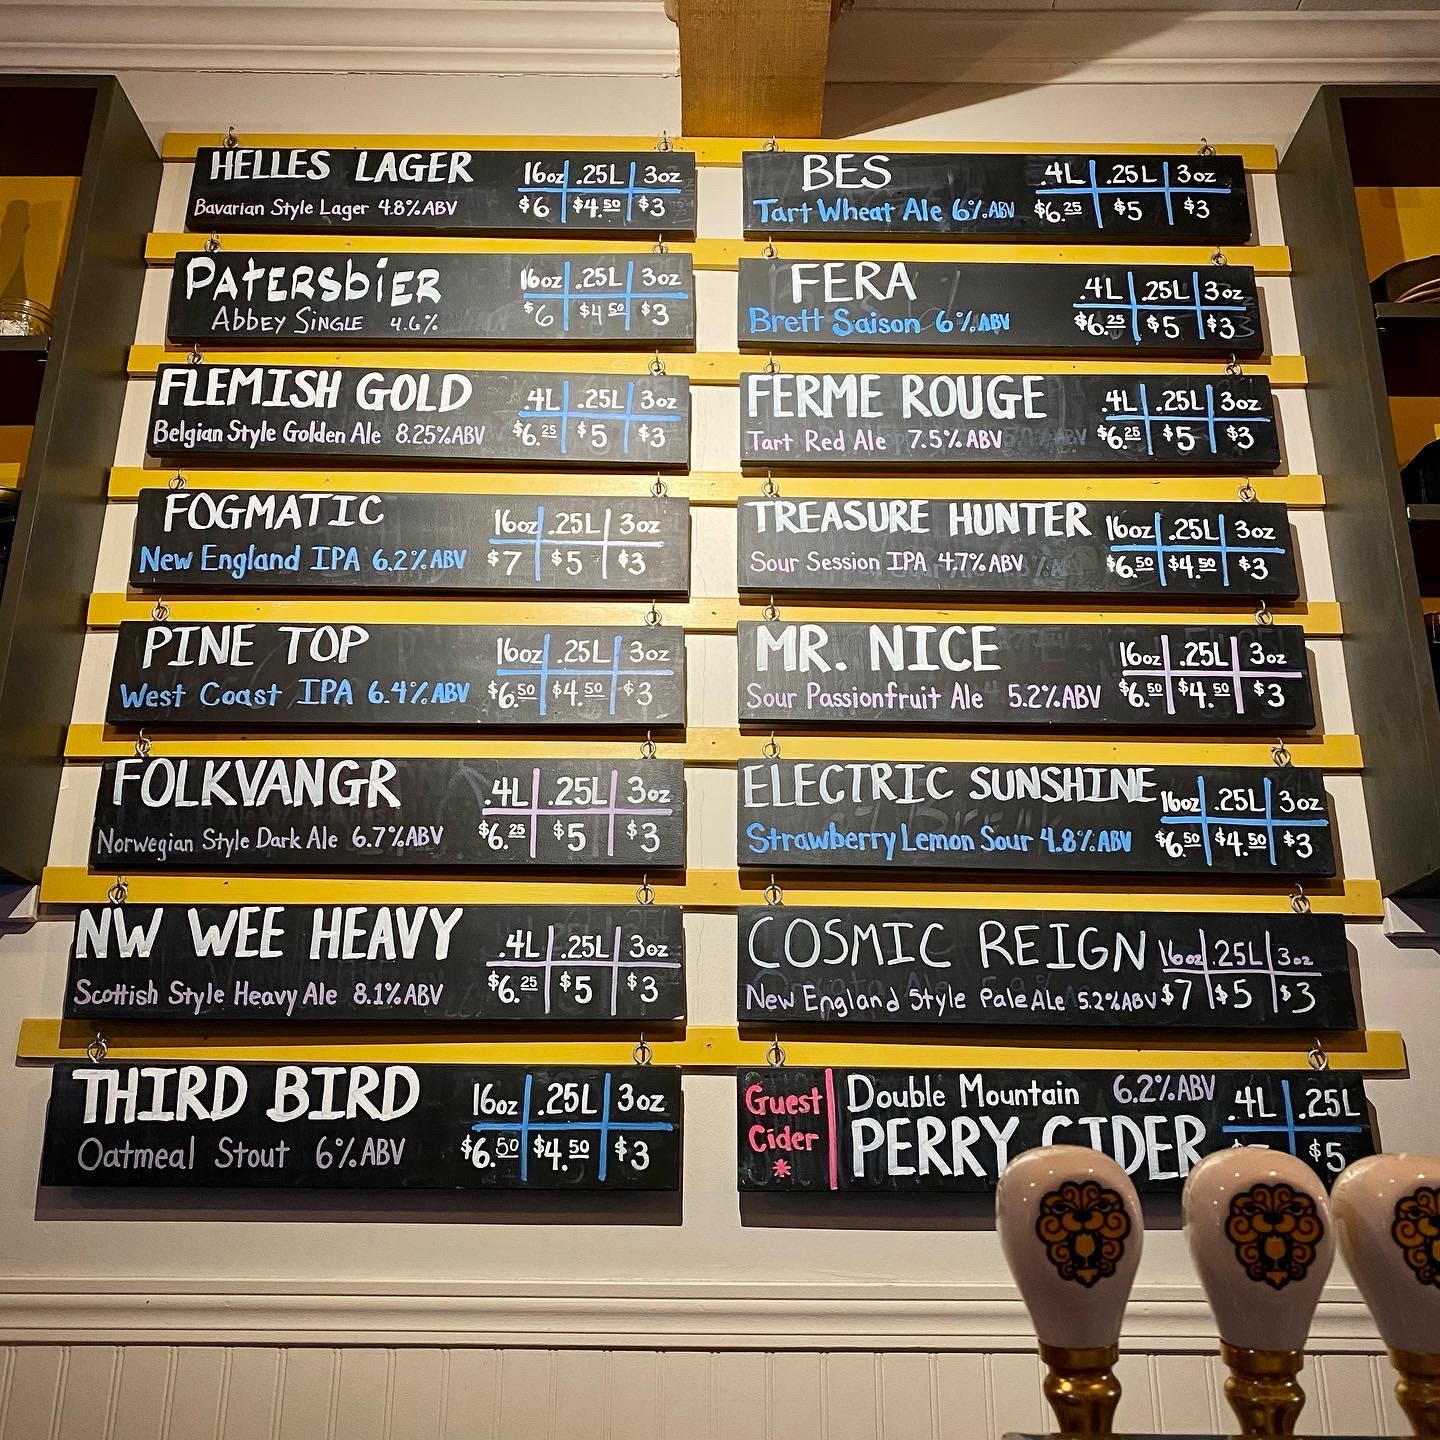 HELLES LAGER 16oz .25L 3oz
Bavarian Style Lager 4.8% ABV $6 $4.50 $3
PATERSBIER 16oz .25L 3oz
ABBEY SINGLE 4.6% $6 $4 50 $3
FLEMISH GOLD .4L .25L 3oz
Belgian Style Golden Ale 8.25% ABV $6.25 $5 $3
FOGMATIC 16oz .25L 3oz
New England IPA 6.2% ABV $7 $5 $3
PINE TOP 16oz .25L 3oz
West Coast IPA 6.4% ABV $6.50 $4.50 $3
FOLKVANGR .4L .25L 3oz
Norwegian Style Dark Ale 6.7% ABV $6.25 $5 $3
NW WEE HEAVY .4L .25L 3oz
Scottish Style Heavy Ale 8.1% ABV $6.25 $5 $3
THIRD BIRD 16oz .25L 3oz
Oatmeal Stout 6% ABV $6.50 $4.50 $3
BES .4L .25L 3oz
Tart Wheat Ale 6% ABV $6.25 $5 $3
FERA .4L .25L 3oz
Brett Saison 6% ABV $6.25 $5 $3
FERME ROUGE .4L .25L 3oz
Tart Red Ale 7.5% ABV $6.25 $5 $3
TREASURE HUNTER 16oz .25L 3oz
Sour Session IPA 4.7% ABV $6.50 $4.50 $3
MR. NICE 16oz .25L 3oz
Sour Passionfruit Ale 5.2% ABV $6.50 $4.50 $3
ELECTRIC SUNSHINE 16oz .25L 3oz
Strawberry Lemon Sour 4.8% ABV $6.50 $4.50 $3
COSMIC REIGN 16oz .25L 3oz
New England Style Pale Ale 5.2% ABV $7 $5 $3
Guest Cider *
Double Mountain 6.2% ABV .4L .25L
PERRY CIDER $5